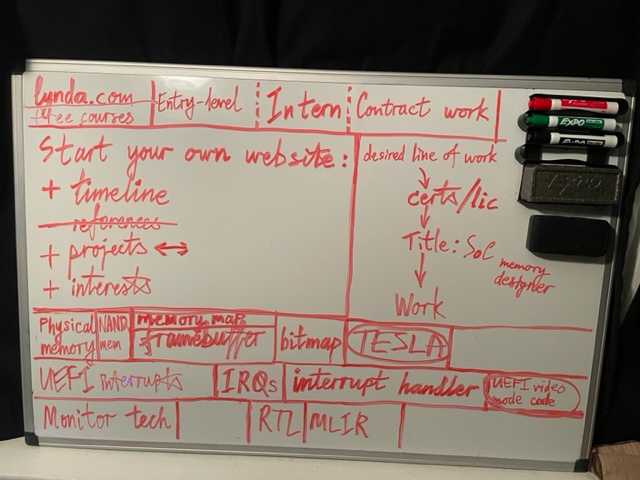 lynda.com
free courses
Entry-level
Intern
Contract work
Start your own website:
+ timeline
references
+ projects ↔
+ interests
desired line of work
↓
certs/lic
↓
Title: SoC memory designer
↓
Work
EXPO
EXPO
Physical memory
NAND mem
memory map
framebuffer
bitmap
TESLA
UEFI interrupts
IRQs
interrupt handler
UEFI video mode code
Monitor tech
RTL
MLIR